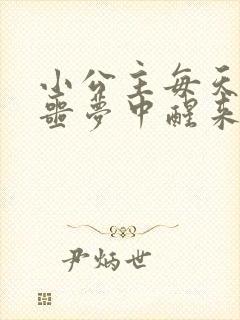 小公主每天
噩梦中醒来
尹炳世